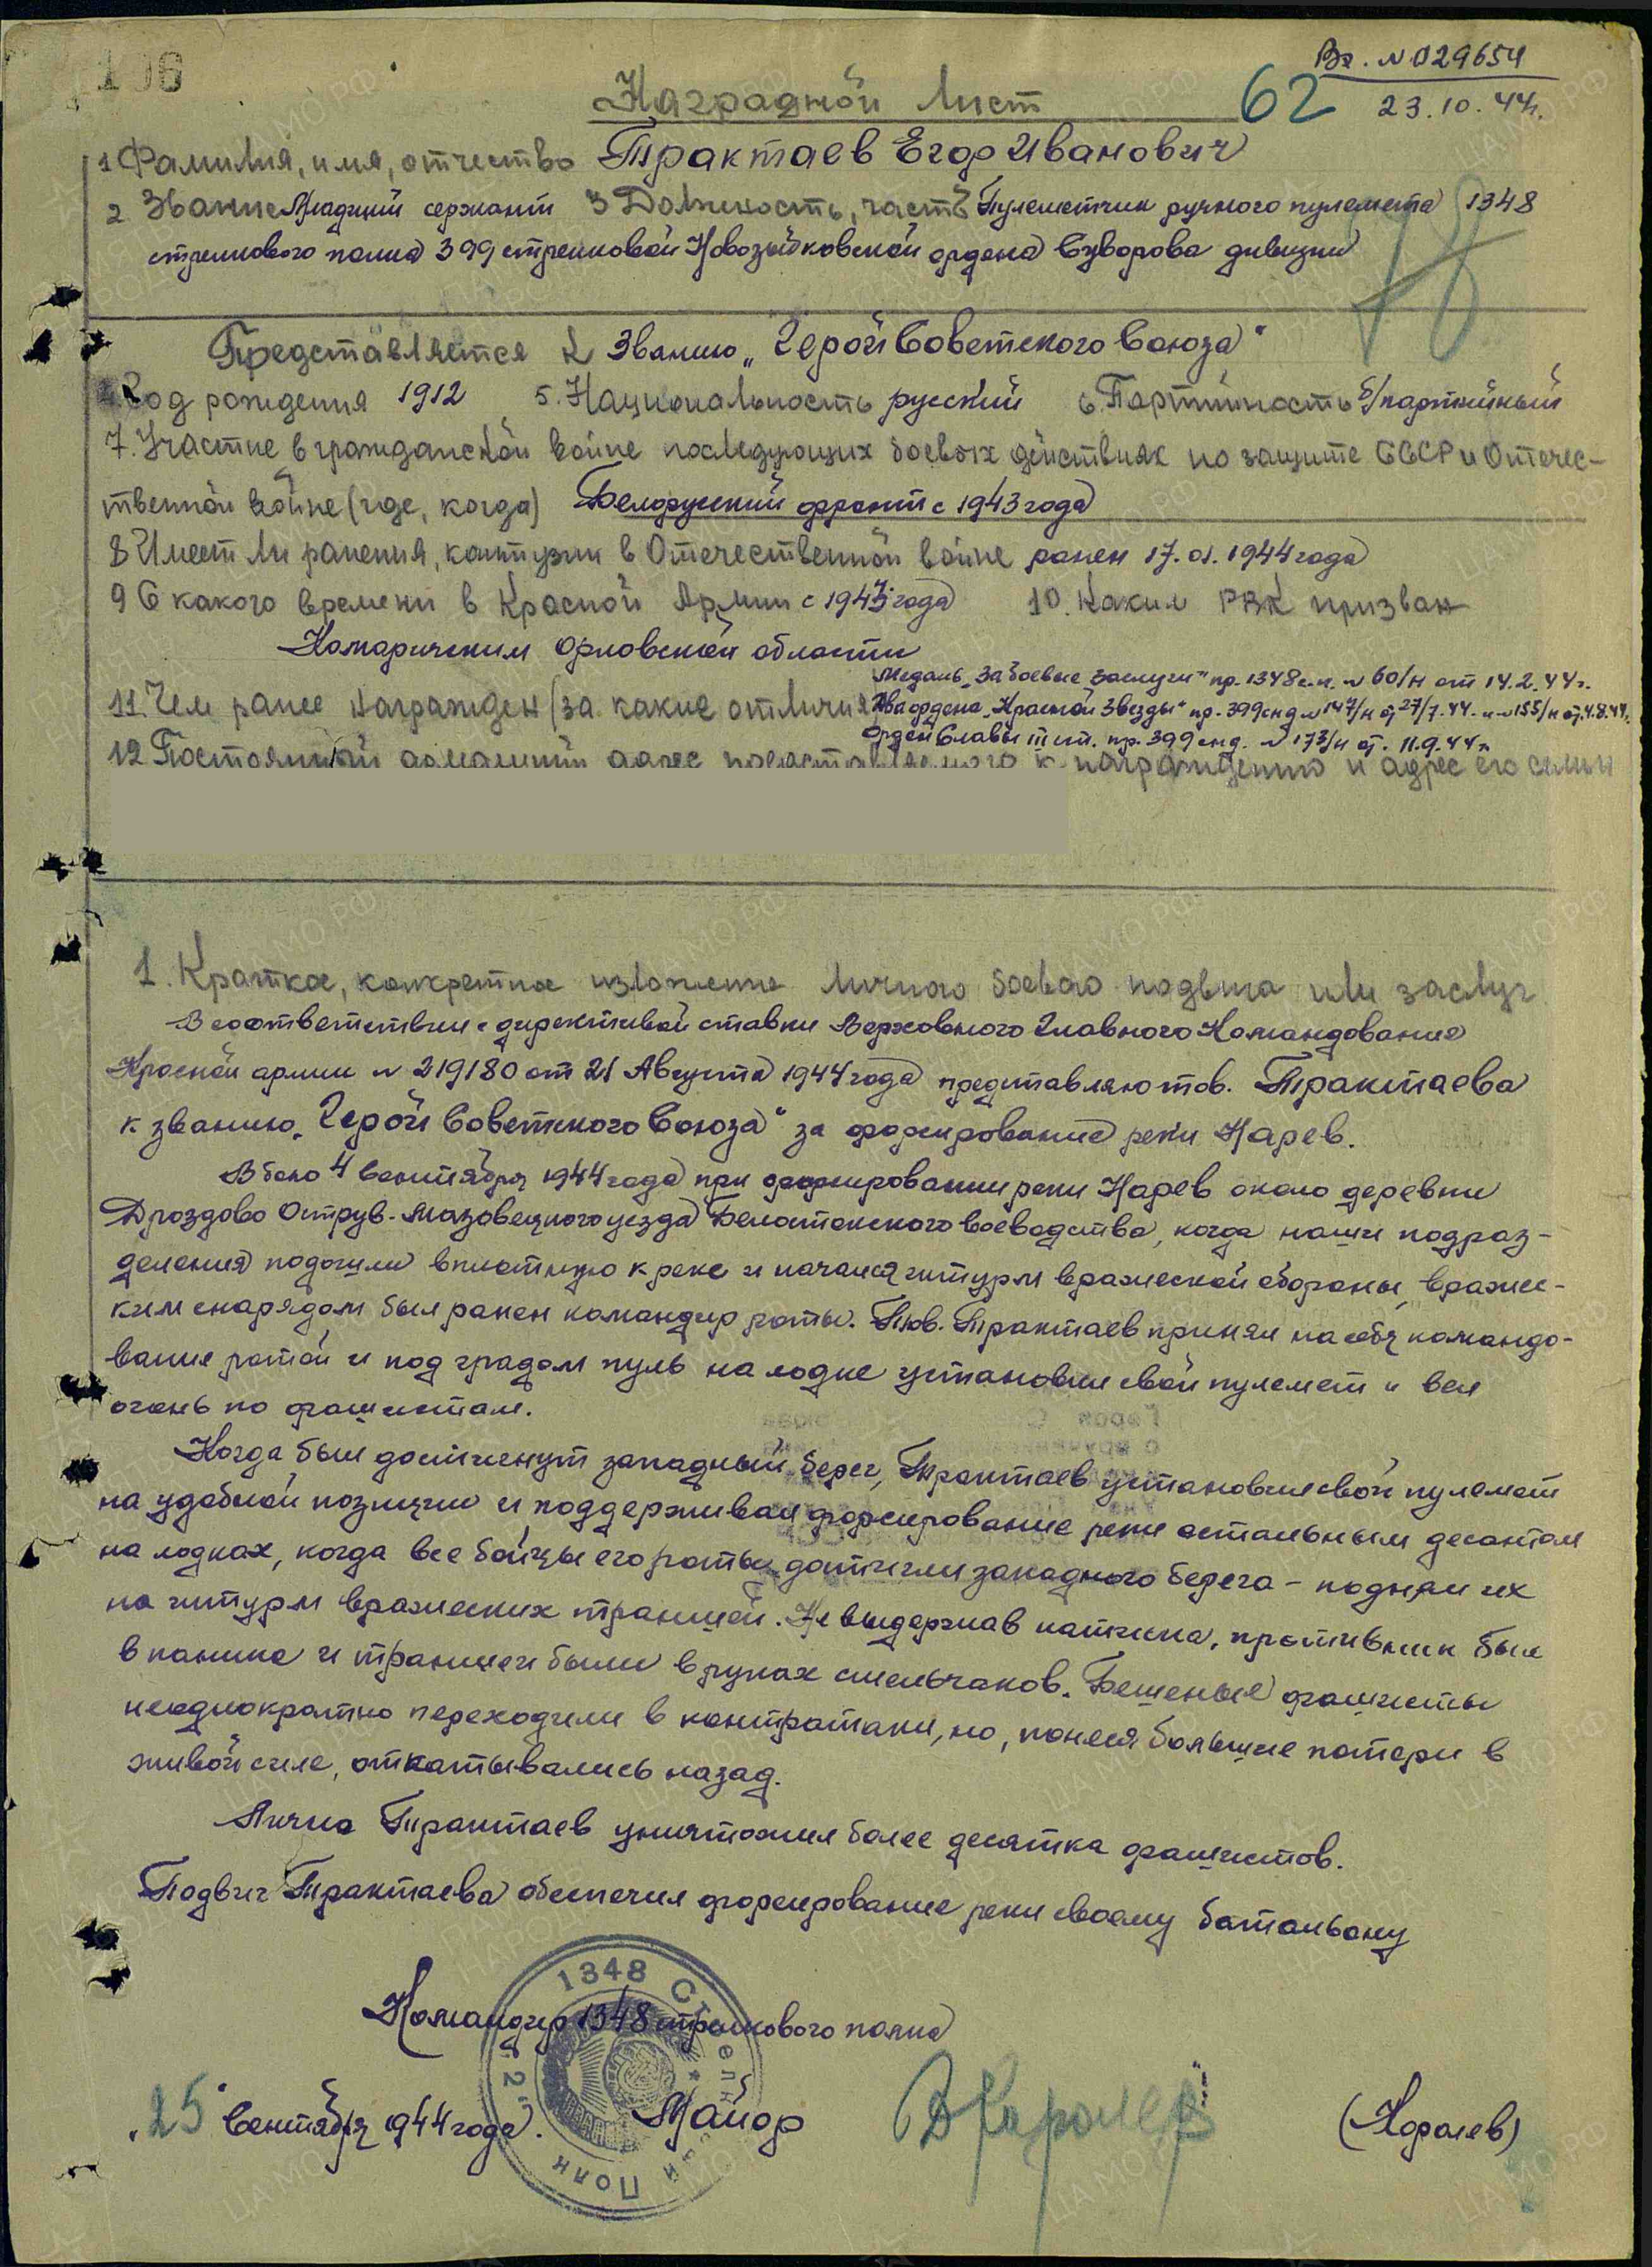 106
Вх. № 029654
62
23.10.44г.
Наградной Лист
1 Фамилия, имя, отчество Трактаев Егор Иванович
2 Звание Младший сержант 3 Должность, часть Пулеметчик ручного пулемета 1348
стрелкового полка 399 стрелковой Новозыбковской ордена Суворова дивизии
Представляется к званию „Герой Советского Союза"
4. Год рождения 1912 5. Национальность русский 6. Партийность б/партийный
7. Участие в гражданской войне последующих боевых действиях по защите СССР и Отечес-
твенной войне (где, когда) Белорусский фронт с 1943 года
8 Имеет ли ранения, контузии в Отечественной войне ранен 17.01.1944 года
9 С какого времени в Красной Армии с 1943 года 10. Каким РВК призван
Комаричским Орловской области
Медаль „За боевые заслуги" пр. 1348 с.п. № 60/н от 14.2.44г.
11. Чем ранее награжден (за какие отличия) Два ордена „Красной Звезды" пр. 399 сд № 147/н от 27/7.44. и № 155/н от 4.8.44г.
Орден Славы III ст. пр. 399 сд. № 173/н от 11.9.44г.
12 Постоянный домашний адрес представляемого к награждению и адрес его семьи
1. Краткое, конкретное изложение личного боевого подвига или заслуг
В соответствии с директивой ставки Верховного Главного Командования
Красной армии № 219180 от 21 Августа 1944 года представляю тов. Трактаева
к званию „Герой Советского Союза" за форсирование реки Нарев.
В бою 4 сентября 1944 года при форсировании реки Нарев около деревни
Дроздово Острув-Мазовецкого уезда Белостокского воеводства, когда наши подраз-
деления подошли вплотную к реке и начался штурм вражеской обороны, вражес-
ким снарядом был ранен командир роты. Тов. Трактаев принял на себя командо-
вание ротой и под градом пуль на лодке установил свой пулемет и вел
огонь по фашистам.
Когда был достигнут западный берег, Трактаев установил свой пулемет
на удобной позиции и поддерживал форсирование реки остальным десантом
на лодках, когда все бойцы его роты достигли западного берега – поднял их
на штурм вражеских траншей. Не выдержав натиска, противник был
в панике и траншеи были в руках смельчаков. Бешеные фашисты
неоднократно переходили в контратаки, но, понеся большие потери в
живой силе, откатывались назад.
Лично Трактаев уничтожил более десятка фашистов.
Подвиг Трактаева обеспечил форсирование реки своему батальону
Командир 1348 стрелкового полка
„25" сентября 1944 года. Майор (Королев)
1348 Стрелковый Полк